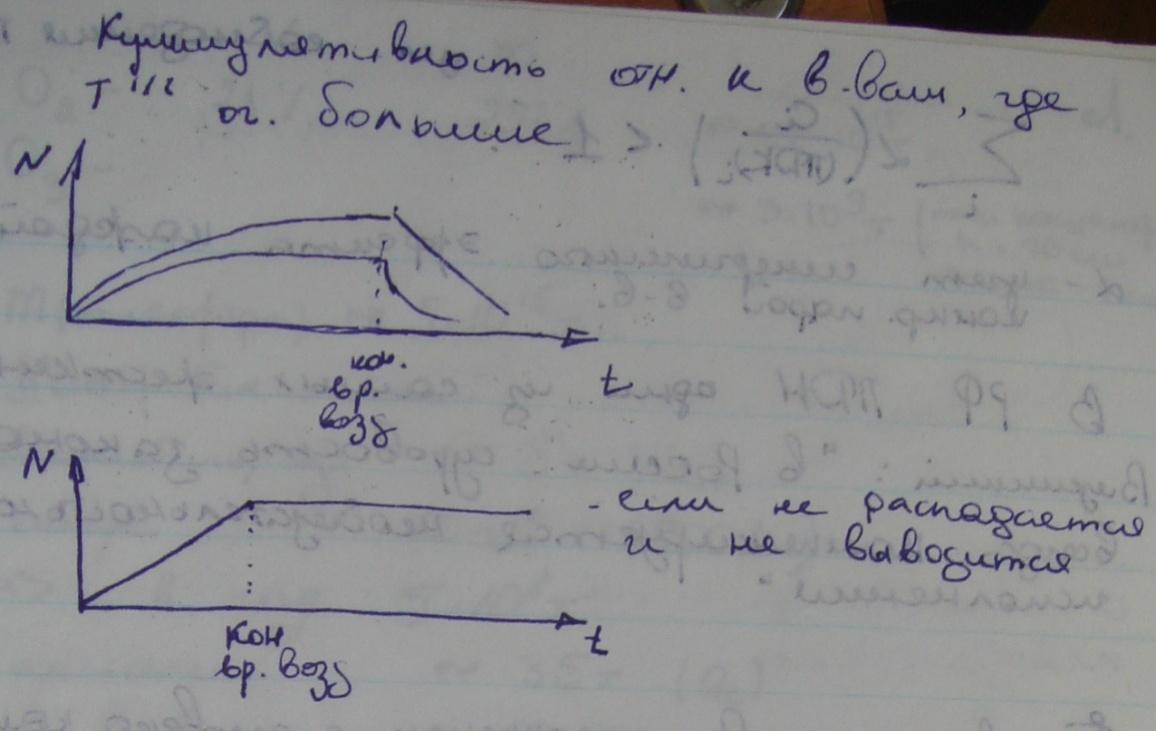 Куммулятивность отн. к в-вам, где
T 1/2 оч. большие
N
кон.
вр.
возд
t
N
- если не распадается
и не выводится
t
кон
вр. возд